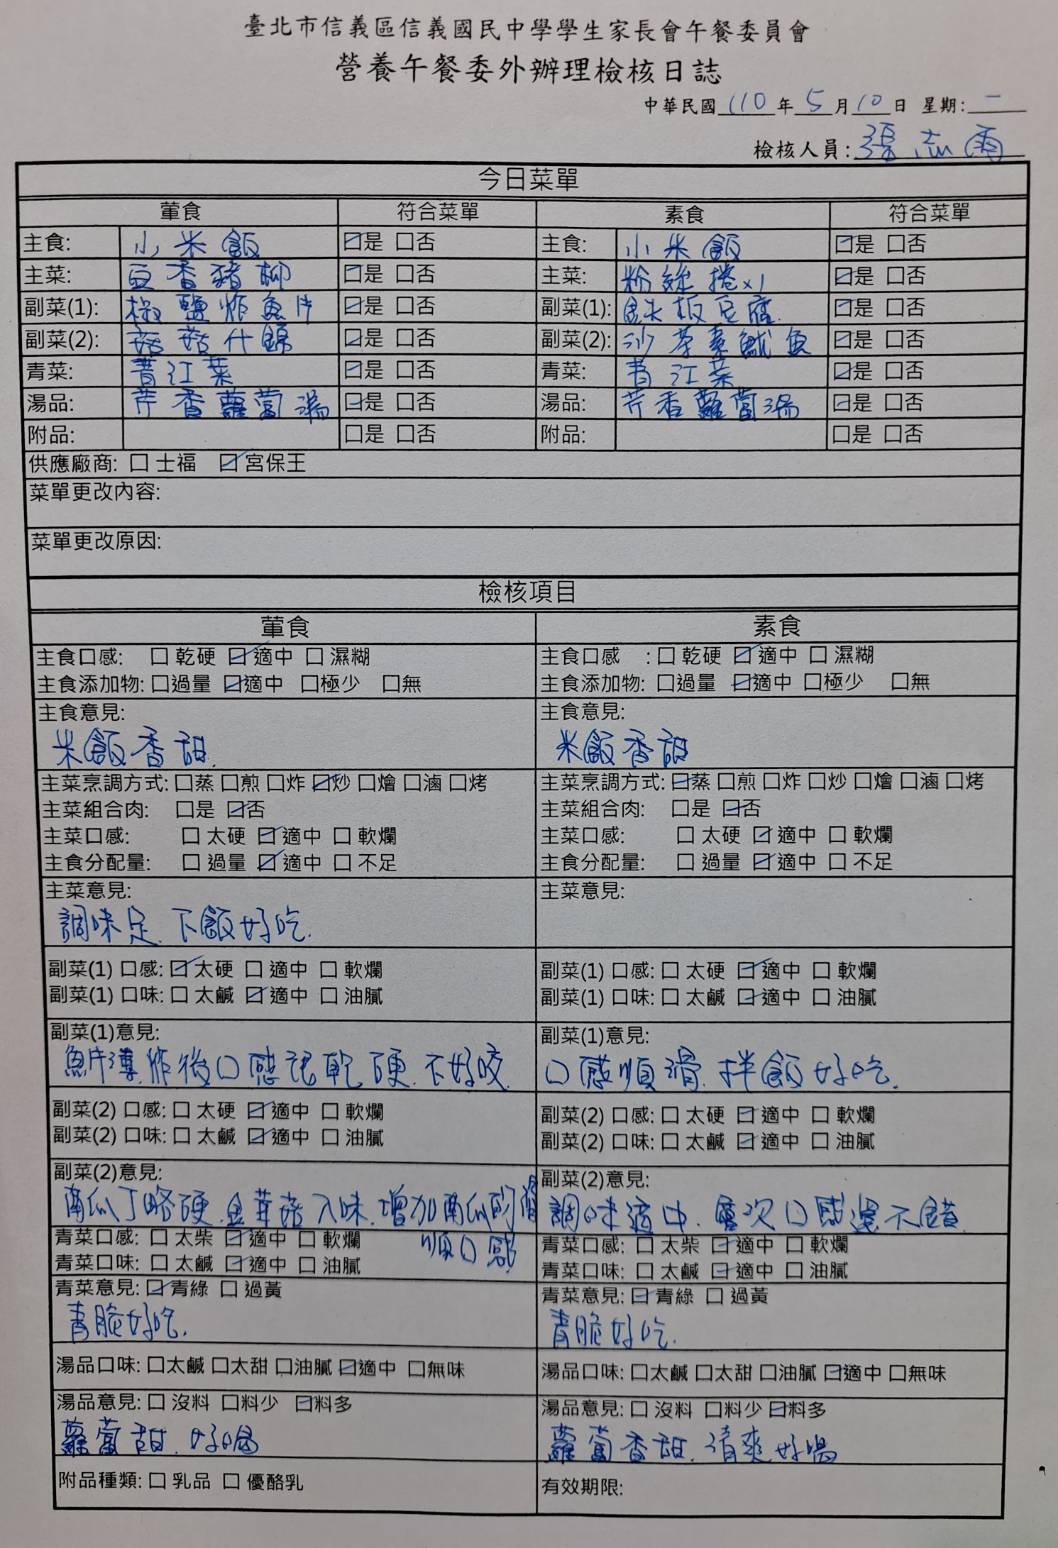 臺北市信義區信義國民中學學生家長會午餐委員會
營養午餐委外辦理檢核日誌
中華民國 110 年 5 月 10 日 星期: 一
檢核人員: 張志雨
今日菜單
葷食 符合菜單 素食 符合菜單
主食: 小米飯 ☑是 □否 主食: 小米飯 ☑是 □否
主菜: 豆香豬柳 ☑是 □否 主菜: 粉絲捲x1 ☑是 □否
副菜(1): 椒鹽炸魚片 ☑是 □否 副菜(1): 鉄板豆腐 ☑是 □否
副菜(2): 菇菇什錦 ☑是 □否 副菜(2): 沙茶素魷魚 ☑是 □否
青菜: 青江菜 ☑是 □否 青菜: 青江菜 ☑是 □否
湯品: 芹香蘿蔔湯 ☑是 □否 湯品: 芹香蘿蔔湯 ☑是 □否
附品: □是 □否 附品: □是 □否
供應廠商: □ 士福 ☑宮保王
菜單更改內容:
菜單更改原因:
檢核項目
葷食 素食
主食口感: □ 乾硬 ☑適中 □ 濕糊 主食口感 : □ 乾硬 ☑適中 □ 濕糊
主食添加物: □過量 ☑適中 □極少 □無 主食添加物: □過量 ☑適中 □極少 □無
主食意見: 主食意見:
米飯香甜. 米飯香甜
主菜烹調方式: □蒸 □煎 □炸 ☑炒 □燴 □滷 □烤 主菜烹調方式: ☑蒸 □煎 □炸 □炒 □燴 □滷 □烤
主菜組合肉: □是 ☑否 主菜組合肉: □是 ☑否
主菜口感: □ 太硬 ☑適中 □ 軟爛 主菜口感: □ 太硬 ☑適中 □ 軟爛
主食分配量: □ 過量 ☑適中 □ 不足 主食分配量: □ 過量 ☑適中 □ 不足
主菜意見: 主菜意見:
調味足. 下飯好吃.
副菜(1) 口感: ☑太硬 □ 適中 □ 軟爛 副菜(1) 口感: □ 太硬 ☑適中 □ 軟爛
副菜(1) 口味: □ 太鹹 ☑適中 □ 油膩 副菜(1) 口味: □ 太鹹 ☑適中 □ 油膩
副菜(1)意見: 副菜(1)意見:
魚片薄, 炸後口感乾硬. 不好咬. 口感順滑. 拌飯好吃.
副菜(2) 口感: □ 太硬 ☑適中 □ 軟爛 副菜(2) 口感: □ 太硬 ☑適中 □ 軟爛
副菜(2) 口味: □ 太鹹 ☑適中 □ 油膩 副菜(2) 口味: □ 太鹹 ☑適中 □ 油膩
副菜(2)意見: 副菜(2)意見:
南瓜丁略硬. 金茸菇入味. 增加南瓜的滑 調味適中. 層次口感還不錯.
順口感
青菜口感: □ 太柴 ☑適中 □ 軟爛 青菜口感: □ 太柴 ☑適中 □ 軟爛
青菜口味: □ 太鹹 ☑適中 □ 油膩 青菜口味: □ 太鹹 ☑適中 □ 油膩
青菜意見: ☑青綠 □ 過黃 青菜意見: ☑青綠 □ 過黃
青脆好吃. 青脆好吃.
湯品口味: □太鹹 □太甜 □油膩 ☑適中 □無味 湯品口味: □太鹹 □太甜 □油膩 ☑適中 □無味
湯品意見: □ 沒料 □料少 ☑料多 湯品意見: □ 沒料 □料少 ☑料多
蘿蔔甜. 好喝 蘿蔔香甜. 清爽好喝
附品種類: □ 乳品 □ 優酪乳 有效期限: